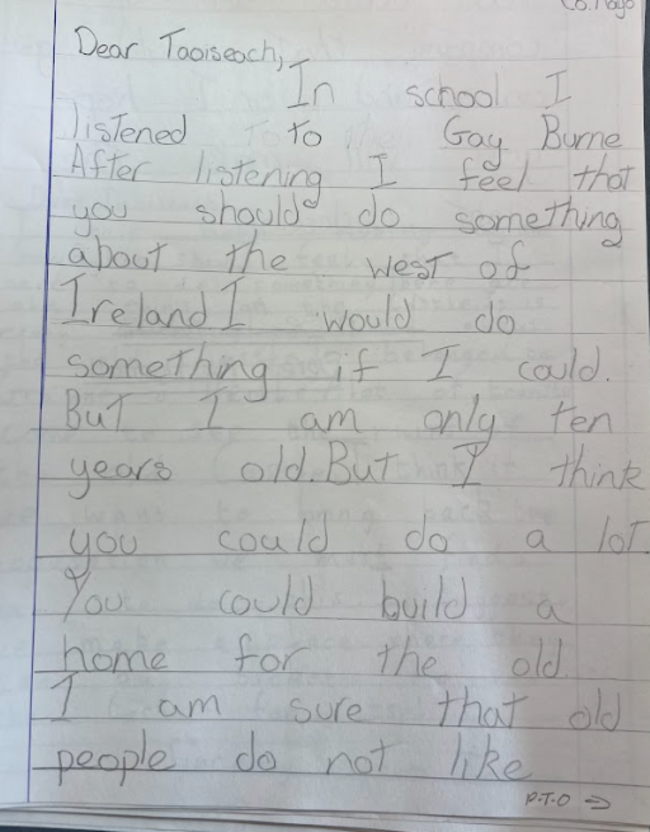 Co. Mayo
Dear Taoiseach,
In school I
listened to Gay Burne
After listening I feel that
you should do something
about the west of
Ireland I would do
something if I could.
But I am only ten
years old. But I think
you could do a lot.
You could build a
home for the old
I am sure that old
people do not like
P.T.O →